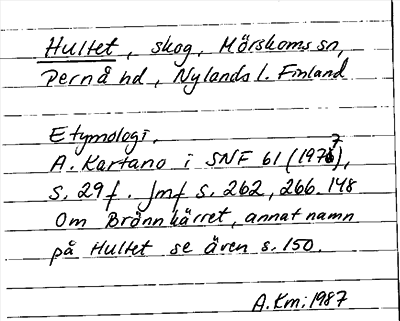 Hultet, skog, Mörskoms sn,
Pernå hd, Nylands l. Finland
Etymologi.
A. Kartano i SNF 61 (1977),
s. 29 f. Jmf s. 262, 266. 148
Om Brännkärret, annat namn
på Hultet se även s. 150.
A.Km: 1987